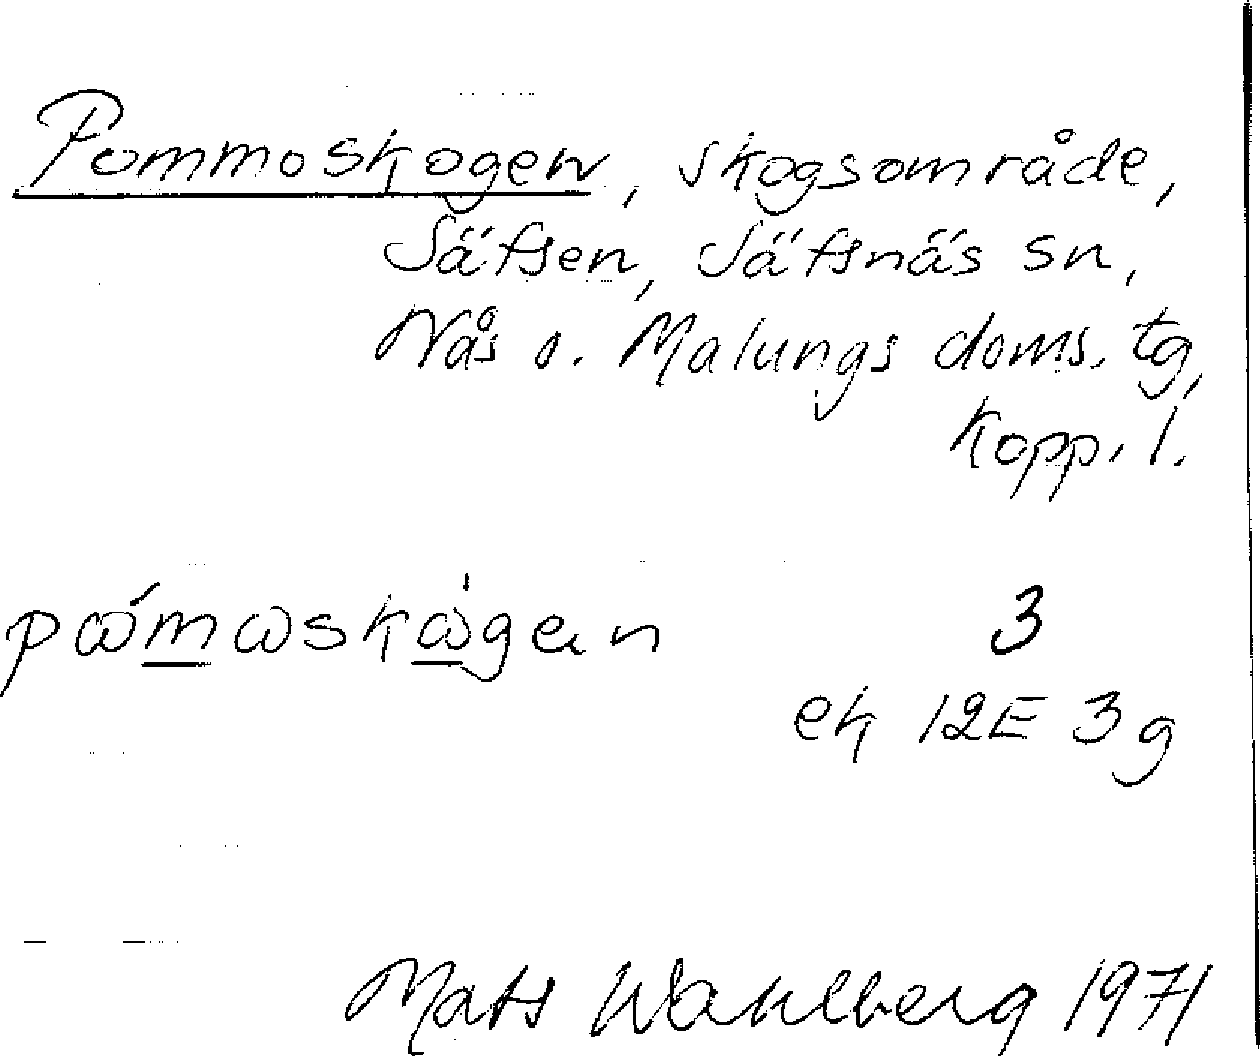 Pommoskogen, skogsområde,
Säfsen, Säfsnäs sn,
Nås o. Malungs doms. tg,
Kopp. l.
pɷ́mɷskɷ̀gan 3
ek 12E 3g
Mats Wahlberg 1971